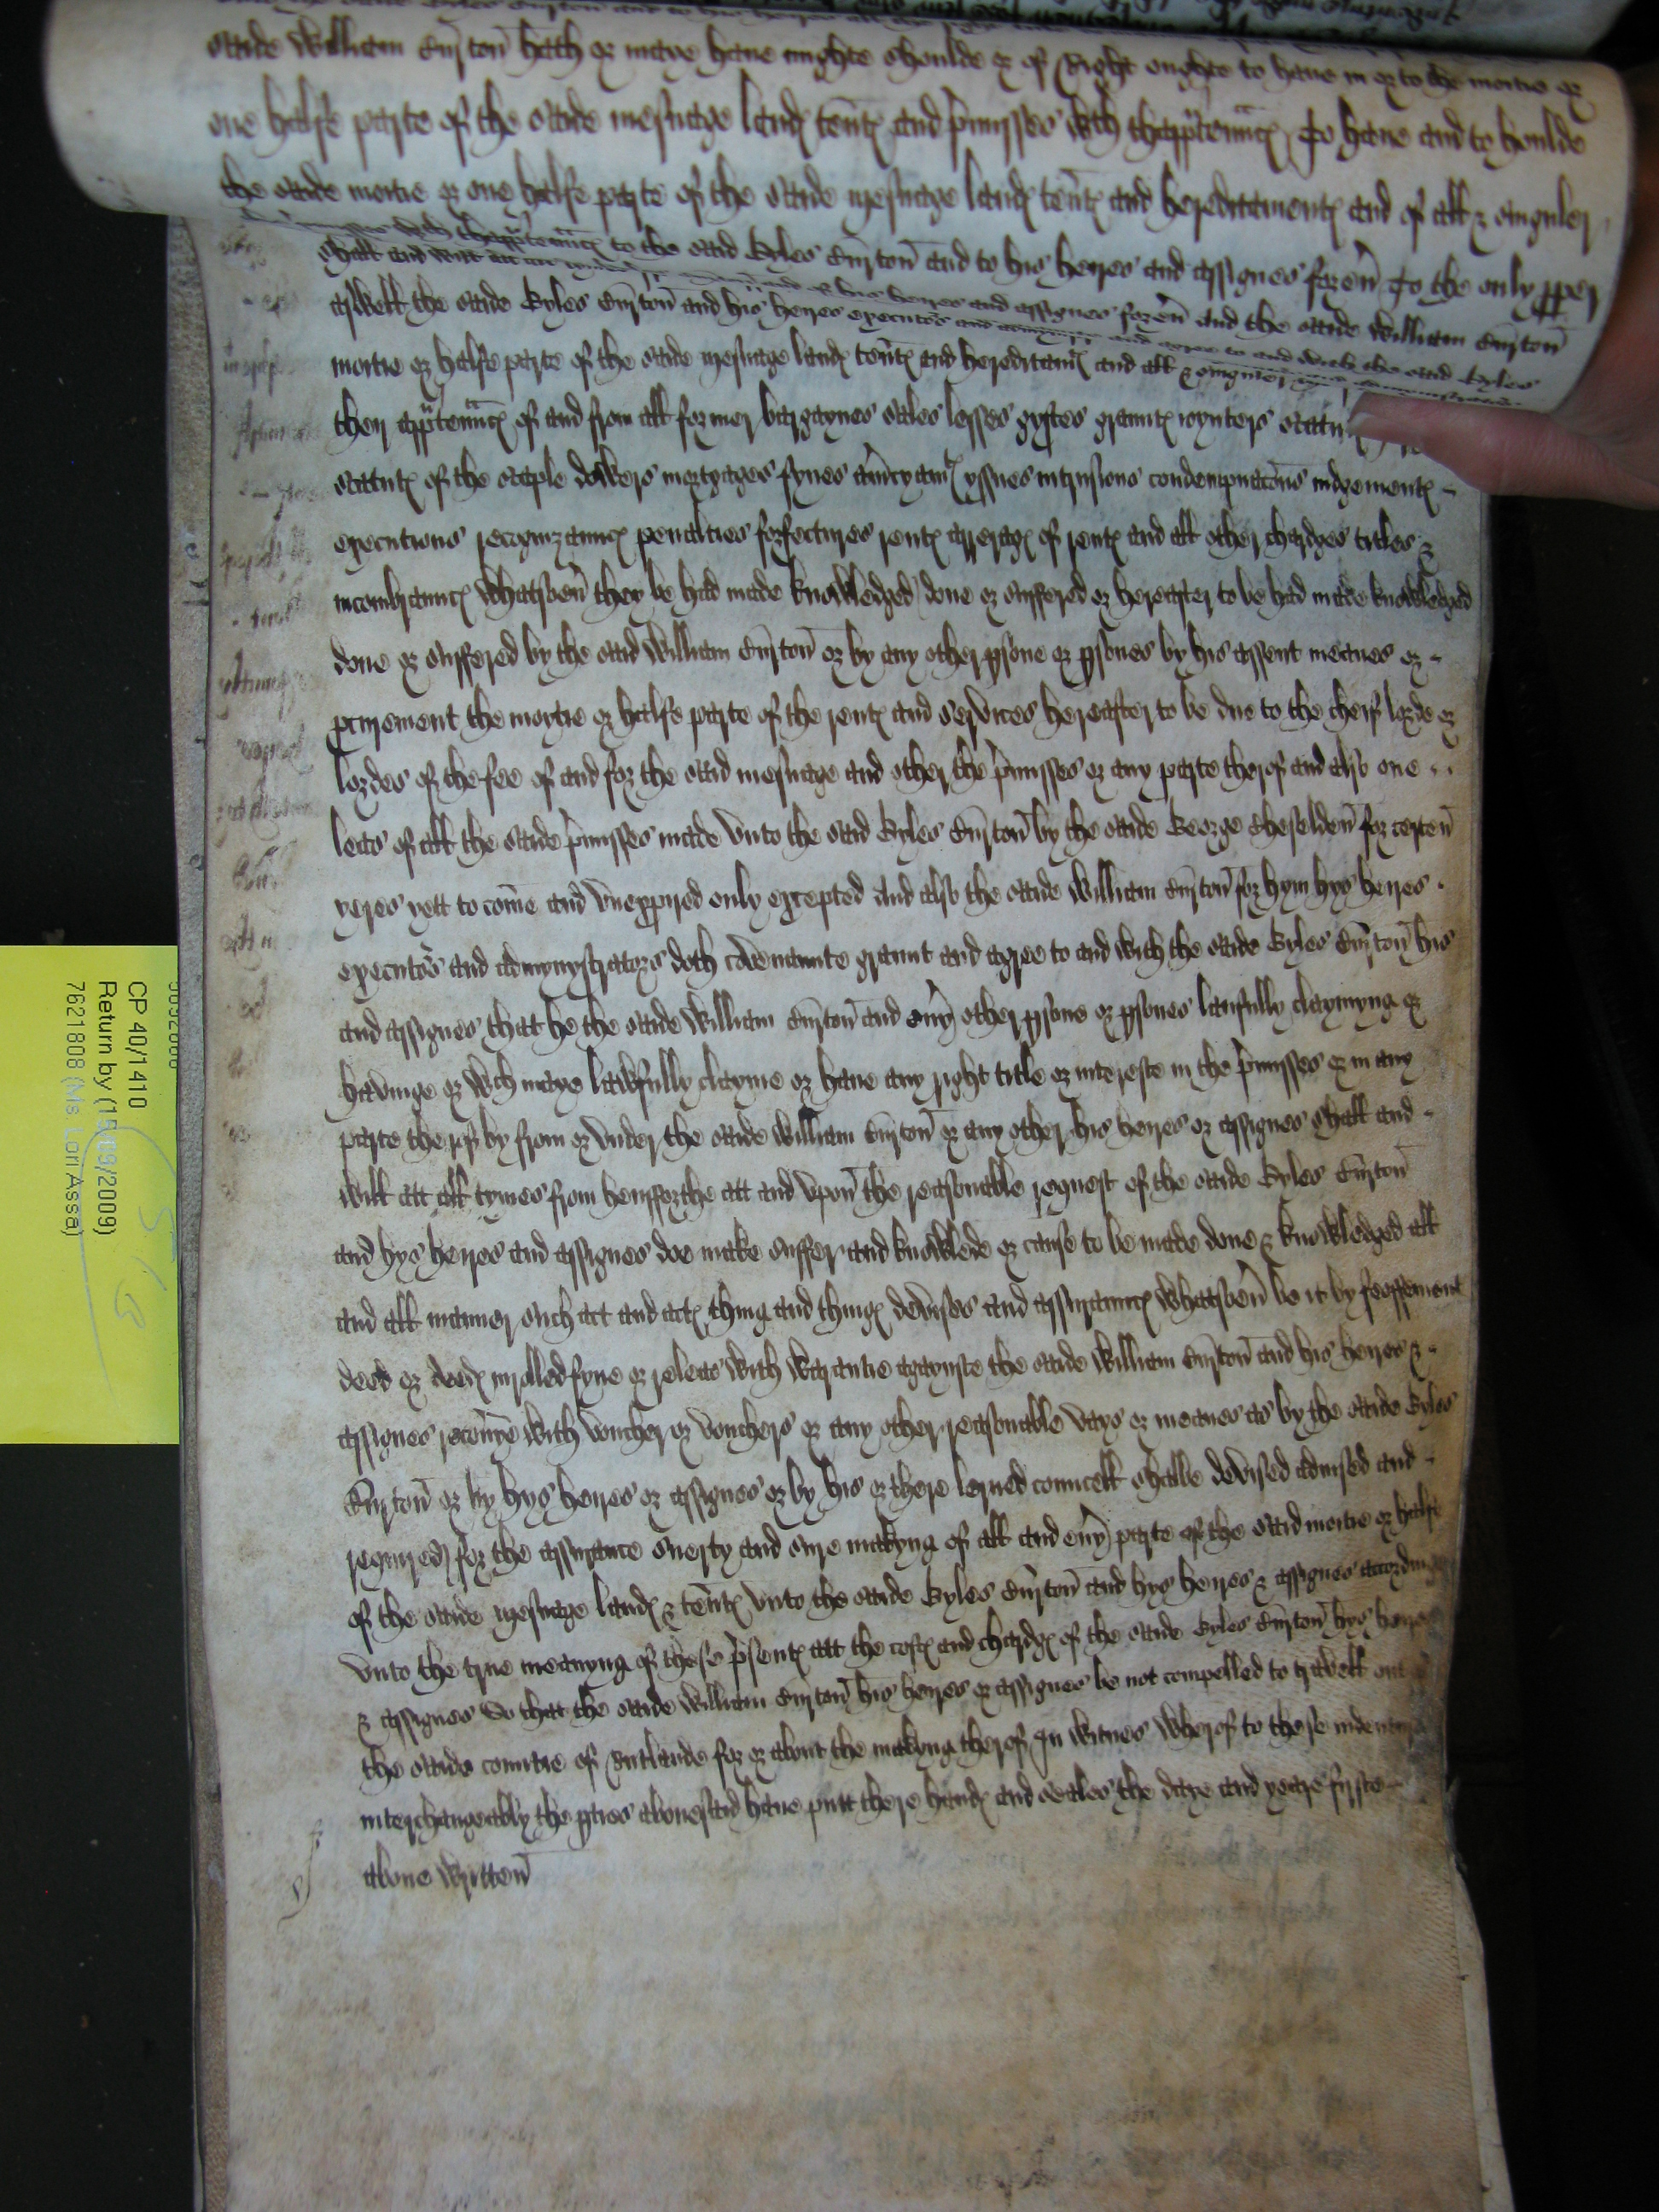 saide William Curton hath or maye have mighte shoulde or of Right oughte to have in or to the moitie or
one halfe parte of the saide mesuage land tent and p'misses wth thapp'tennc To have and to houlde
the saide moitie or one halfe parte of the saide mesuage land tent and hereditament and of all & singuler
p'misses with thapp'tennc to the said Gyles Curton and to his heyres and assignes forev' To the only pper
and of his heyres and assignes forev' And the saide William Curton
to and with the said Gyles
shall and will att all
aswell the saide Gyles Curton and his heyres executors and
moitie or halfe parte of the saide mesuage land tent and hereditam and all & singuler
then app'tennc of and from all former bargaynes sales leases gyftes graunt ioynters statut
statut of the staple dowers mortgages fynes am'cyam yssues intrusions condempnacons iudgement
executions recognizannc penalties forfectures rent arrerag of rent and all other chardges titles &
incombrannc whatsoev' they be had made knowledged done or suffered or hereafter to be had made knowledged
done or suffered by the said William Curton or by any other psone or psones by his assent meanes or
p'curement the moitie or halfe parte of the rent and services hereafter to be due to the cheif lorde or
lordes of the fee of and for the said mesuage and other the p'misses or any parte therof and also one
leas of all the saide p'misses made unto the said Gyles Curton by the saide George Cheselden for certen
yeres yett to come and unexpired only excepted And also the saide William Curton for hym hys heyres
executors and admynystrators doth covennante graunt and agree to and with the saide Gyles Curton his
and assignes that he the saide William Curton and ev'y other psone or psones laufully claymyng or
havinge or wch maye lawfully clayme or have any right title or intereste in the p'misses or in any
parte therof by from or under the saide William Curton or any other his heyres or assignes shall and
will att all tymes from hensforthe att and upon the reasonable request of the saide Gyles Curton
and hys heyres and assignes doe make suffer and knowlede or cause to be made done & knowledged all
and all manner such act and act thing and thing devises and assurannc whatsoev' be it by feoffement
deed or deed inrolled fyne or releas with warantie agaynste the saide William Curton and his heyres &
assignes recov'ie with voucher or vouchers or any other reasonable ways or meanes as by the saide Gyles
Curton or by hys heyres or assignes or by his or there lerned councell shalbe devised advised and
required for the assurance suerty and sure makyng of all and ev'y parte of the said moitie or halfe
of the saide mesuage land & tent unto the saide Gyles Curton and hys heyres & assignes according
unto the true meanyng of these p'sent att the cost and chardg of the saide Gyles Curton hys heyres
& assignes So that the saide William Curton his heyres or assignes be not compelled to travell out of
the saide countie of Rutlande for or about the makyng therof In witnes wherof to these indentures
interchangeably the pties abovesaid have putt there hand and seales the daye and yeare firste
above wrytten
CP 40/1410
Return by (15/09/2009)
7621808 (Ms Lori Assa)